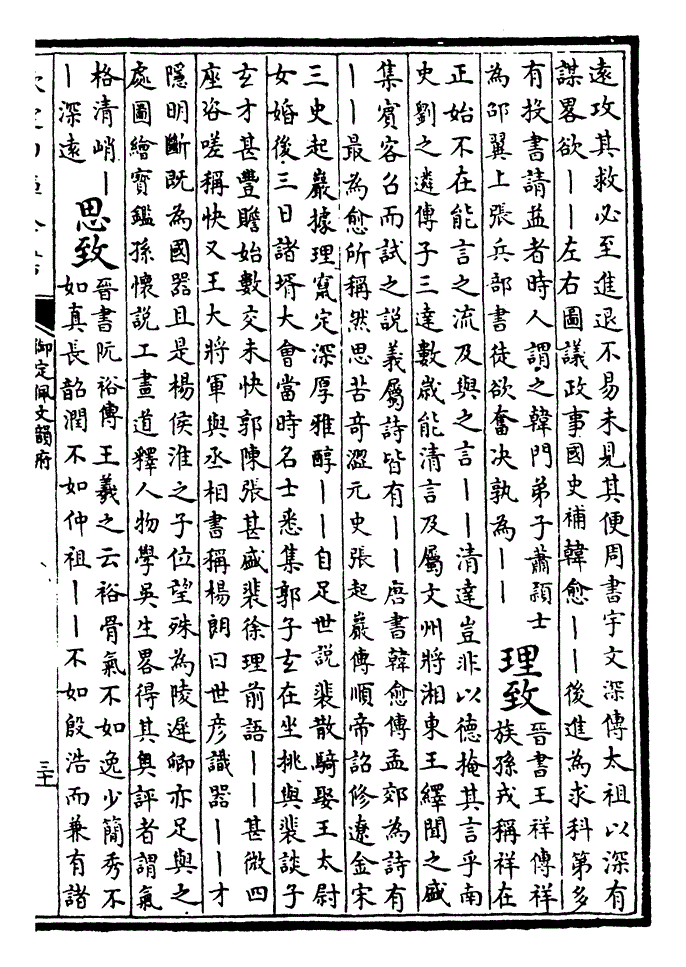 遠攻其救必至進退不易未見其便周書宇文深傳太祖以深有
謀畧欲丨丨左右圖議政事國史補韓愈丨丨後進為求科第多
有投書請益者時人謂之韓門弟子蕭頴士
為邵翼上張兵部書徒欲奮决孰為丨丨
理致
晉書王祥傳祥
族孫戎稱祥在
正始不在能言之流及與之言丨丨清達豈非以德掩其言乎南
史劉之遴傳子三達數歳能清言及屬文州將湘東王繹聞之盛
集賓客召而試之說義屬詩皆有丨丨唐書韓愈傳孟郊為詩有
丨丨最為愈所稱然思苦奇澀元史張起巖傳順帝詔修遼金宋
三史起巖據理竄定深厚雅醇丨丨自足世說裴散騎娶王太尉
女婚後三日諸壻大會當時名士悉集郭子玄在坐挑與裴談子
玄才甚豐贍始數交未快郭陳張甚盛裴徐理前語丨丨甚微四
座咨嗟稱快又王大將軍與丞相書稱楊朗曰世彦識器丨丨才
隱明斷既為國器且是楊侯淮之子位望殊為陵遲卿亦足與之
處圖繪寳鑑孫懷説工畫道釋人物學吳生畧得其奥評者謂氣
格清峭丨
丨深遠
思致
晉書阮裕傳王羲之云裕骨氣不如逸少簡秀不
如真長韶潤不如仲祖丨丨不如殷浩而兼有諸
御定佩文韻府